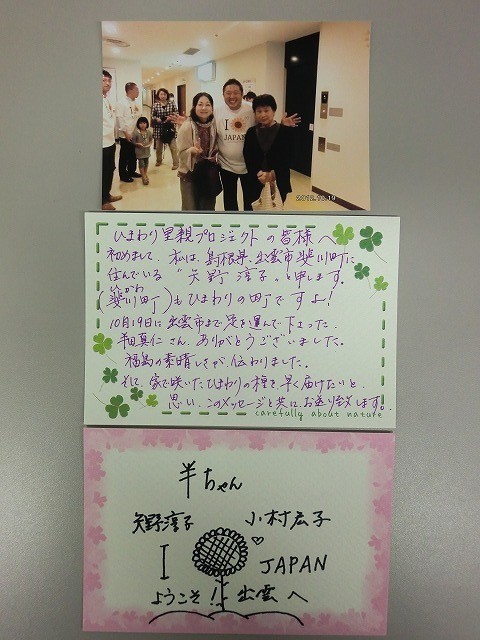 I
JAPAN
2012.10.19
ひまわり里親プロジェクトの皆様へ
初めまして、私は、島根県出雲市斐川町に
住んでいる "矢野淳子"と申します。
ひかわ
(斐川町)もひまわりの町ですよ!
10月19日に出雲市まで足を運んで下さった、
半田真仁さん、ありがとうございました。
福島の素晴しさが伝わりました。
そして、家で咲いたひまわりの種を早く届けたいと
思い、このメッセージと共にお送り致します。
carefully about nature
羊ちゃん
矢野淳子 小村広子
I JAPAN
ようこそ!出雲へ